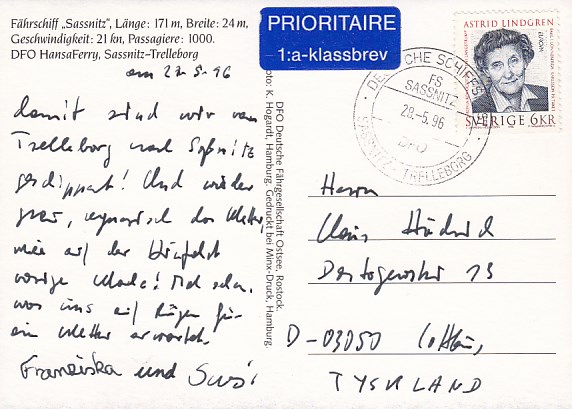 Fährschiff „Sassnitz”, Länge: 171 m, Breite: 24 m,
Geschwindigkeit: 21 kn, Passagiere: 1000.
DFO HansaFerry, Sassnitz–Trelleborg
damit sind wir von
Trelleborg nach Saßnitz
geschippert! Und wieder
das Wetter,
wie auf der Hinfahrt
vorige Woche! Mal sehn,
was uns auf Rügen für
ein Wetter erwartet.
Franziska und Susi
Foto: K. Hogardt, Hamburg. Gedruckt bei Minx-Druck, Hamburg.
DFO Deutsche Fährgesellschaft Ostsee, Rostock
PRIORITAIRE
1:a-klassbrev
DEUTSCHE
FS
SASSNITZ
28.-5.96
DFO
SASSNITZ - TRELLEBORG
ASTRID LINDGREN
EUROPA
SVERIGE 6KR
Herrn
13
D-03050 Cottbus,
TYSKLAND